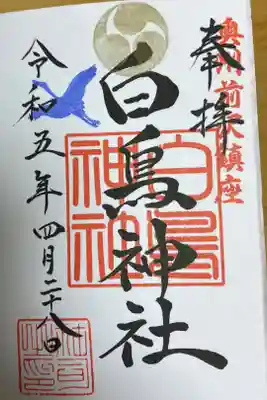 奥州前沢鎮座
奉拝
白鳥神社
白鳥
神社
令和五年四月二十八日